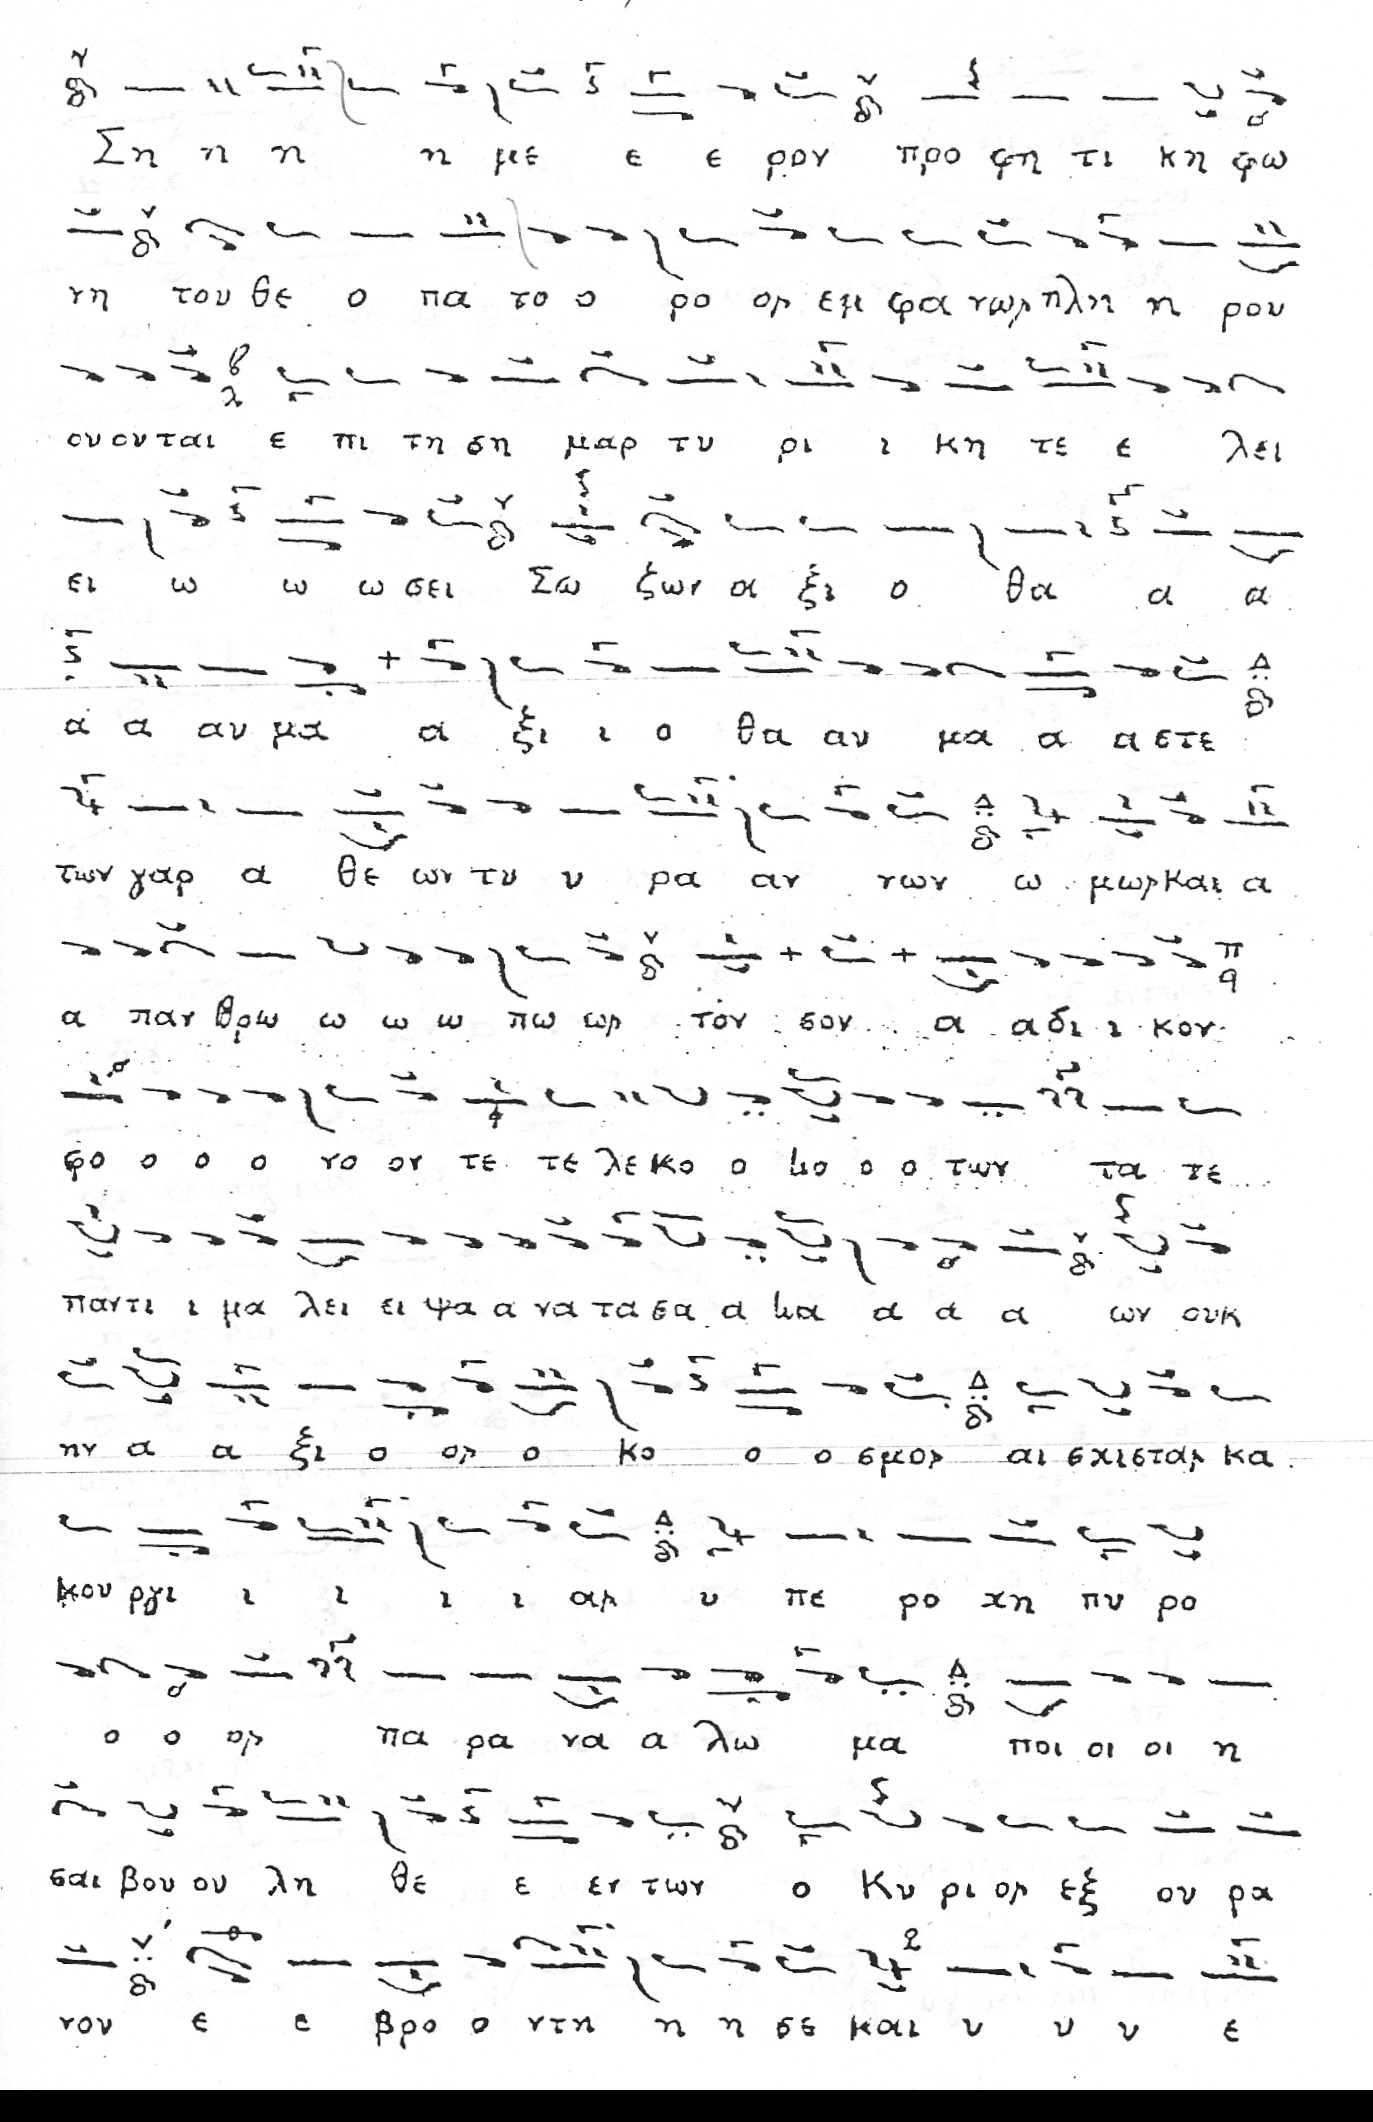 Ση η η η με ε ε ρον προ φη τι κη φω
νη του θε ο πα το ο ρο ος εμ φα νως πλη η ρου
ου ου νται ε πι τη ση μαρ τυ ρι ι κη τε ε λει
ει ω ω ω σει Σω ζων α ξι ο θα α α
α α αυ μα α ξι ι ο θα αυ μα α α στε
των γαρ α θε ων τυ υ ρα αν νων ω μως Και α
α παν θρω ω ω ω πω ως τον σον α α δι ι κον
φο ο ο ο νο ον τε τε λε κο ο ο ο των τα τε
παντι ι μα λει ει ψα α να τα σα α α α α ων ουκ
ην α α ξι ο ος ο κο ο ο σμος αι σχιστας κα
κου ργι ι ι ι ι ας υ πε ρο χη πυ ρο
ο ο ος πα ρα να α λω μα ποι οι οι η
σαι βου ου λη θε ε εν των ο Κυ ρι ος εξ ου ρα
νου ε ε βρο ο ντη η η σε και υ υ υ ε